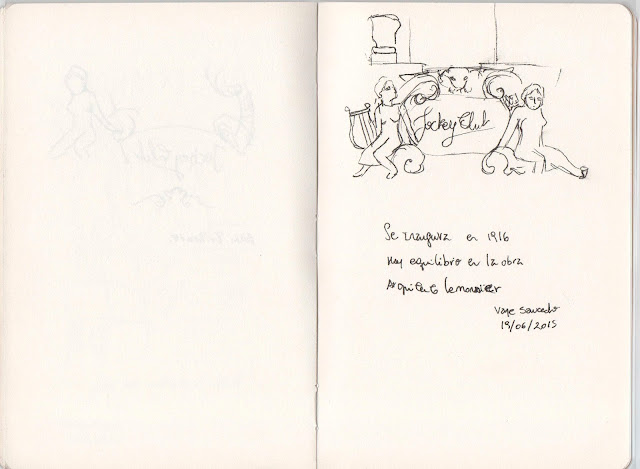 Jockey Club
Se inaugura en 1916
Hay equilibro en la obra
Arquitecto Lemonnier
Vane Saucedo
19/06/2015